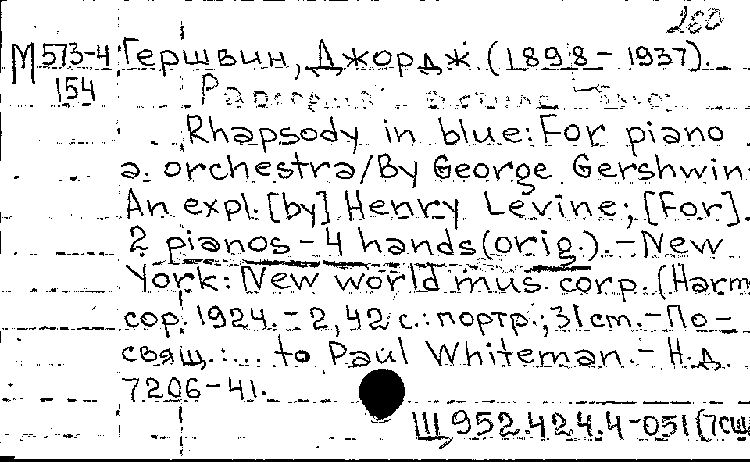 280
М 573-4 Гершвин, Джордж (1898-1937).
154
Rhapsody in blue: For piano
a. orchestra/By George Gershwin.
An expl. [by] Henry Levine; [For].
2 pianos-4 hands (orig.).-New
York: New world mus. corp. (Harm
cop. 1924.-2, 42 с.: портр.; 31cm.-По-
свящ.:... to Paul Whiteman.- Н.д.
7206-41.
Щ952.424.4-051(7сш